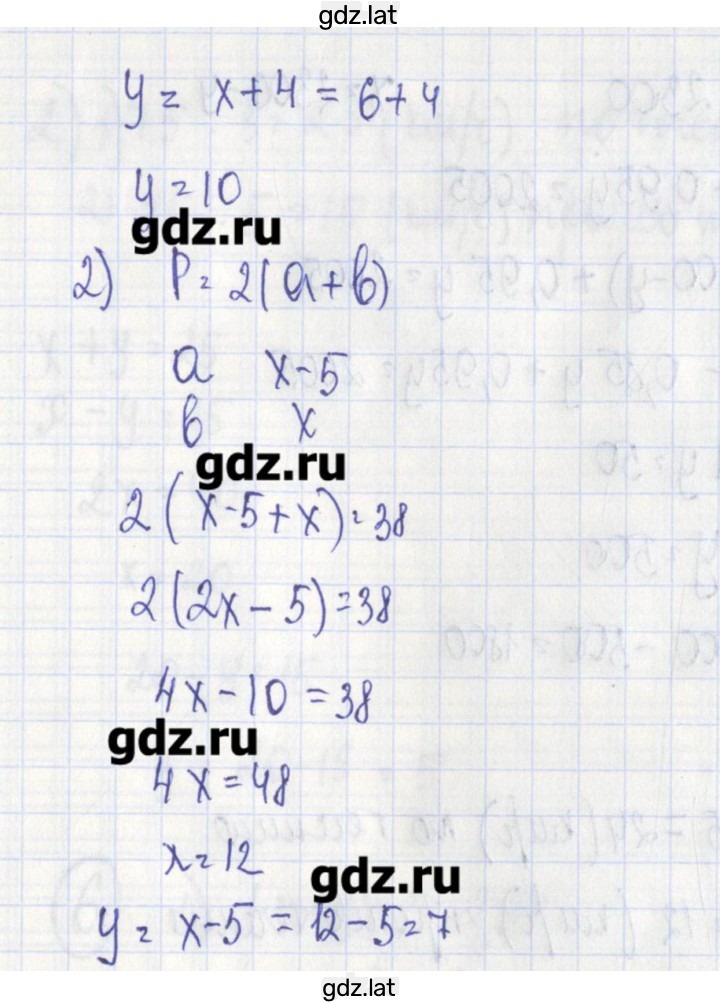 gdz.lat
y = x+4 = 6+4
y = 10
gdz.ru
2) P = 2(a+b)
a x-5
b x
gdz.ru
2(x-5+x) = 38
2(2x-5) = 38
4x-10 = 38
gdz.ru
4x = 48
x = 12
gdz.ru
y = x-5 = 12-5 = 7
gdz.lat